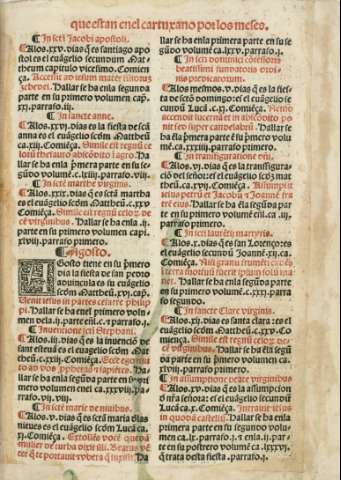 que estan en el cartuxano por los meses.
¶ In sc̃ti Jacobi apostoli.
Alos .xxv. dias q̃ es santiago apo
stol es el euãgelio seg̃undum Mat
theum capitulo vicesimo. Comien
ça. Accessit ad iesum mater filiorum
zebedei. Hallar se ha enla segunda
parte en su primero volumen cap.
xxj. parrafo .iij.
¶ In sancte anne.
Alos .xxvj. dias es la fiesta de sctã
anna es el euãgelio scd̃m Mattheũ
ca. xiij. Comiẽça. Simile est regnũ ce
lorũ thesauro abscõdito ĩ agro. Ha
llar se ha enla .j. parte en su se
gũdo volumẽ .c. xliiij. parrafo .viij.
¶ In sctẽ marthe virginis.
Alos .xxix. dias es sctã martha
es el euãgelio scd̃m Mattheũ c. xxv
Comiẽça. Simile est regnũ celoꝝ de
cẽ virginibus. Hallar se ha enla .ij.
parte en su primero volumen capi.
xlviij. parrafo primero.
¶ Agosto.
Agosto tiene en su p̃mero
dia la fiesta de san pedro
aduincula es su euãgelio
scd̃m Mattheũ .xvj. cap̃.
Venit iesus in partes cesarie philip
pi. Hallar se ha enel primero volu
men dela .ij. parte enl̃ .c. .j. parrafo .j.
¶ Inuencione sc̃ti Stephani.
Alos .iij. dias es la inuenciõ de
sant esteuã es el euãgelio scd̃m Mat
theũ. c. xxiij. Comiẽça. Ecce ego mit
to ad vos ꝓphetas ⁊ sapiẽtes. Ha
llar se ha enla segũda parte en su pri
mero volumen enel ca. xxxvij. pa
rrafo .viij.
¶ In sctẽ marie de niuibus.
Alos .v. dias es sctã maria dlas
nieues es el euãgelio scd̃m Lucã ca.
xj. Comiẽça. Extollẽs vocẽ quedã
mulier de turba dixit illi. Beatus vẽ
ter q̃ te portauit ⁊ vbera q̃ suxisti. Ha
llar se ha enla primera parte en su se
gũdo volumẽ ca. lxxv. parrafo .j.
beatissimi fundatoris ordinis
predicatorum.
Alos mesmos .v. dias es la fies
ta de sctõ domingo: es el euãgelio se
cundũ Lucã .c. xj. Comiẽça. Nemo
accendit lucernã et in abscõdito po
nit sed super candelabrũ. Hallar se
ha ẽla p̃mera parte ẽ su p̃mero volu
mẽ ca. xxxiij. parrafo primero.
¶ In transfiguratione dñi.
Alos .vj. dias es la transfigura
ciõ del señor: es el euãgelio scd̃m mat
theũ ca. xvij. Comiẽça. Assumpsit ie
sus petrũ et Jacobũ ⁊ Joannẽ fra
trẽ eius. Hallar se ha enla segũda
parte en su primero volumẽ enl̃ ca. iij.
parrafo primero.
¶ In sc̃ti laurẽtij martyris.
Alos .x. dias es san Lorenço: es
el euãgelio secundũ Joannẽ .xij. ca.
Comiẽça. Nisi granũ frumẽti cadẽs ĩ
terra mortuũ fuerit ipsum solũ ma
net. Hallar se ha enla segũda parte
en su primero volumẽ .c. xxxj. parra
fo segundo.
¶ In sancte Clare virginis.
Alos .xij. dias es santa clara: es el
euãgelio scd̃m Mattheũ .c. xxv. Co
miẽça. Simile est regnũ celoꝝ decẽ
virginibus. Hallar se ha ẽla segũ
da parte en su p̃mero volumen ca.
xlviij. parrafo primero.
¶ In assumptione beate virginis
Alos .xv. dias es la assumpcion
d̃ nr̃a señora: es el euãgelio secundũ
Lucã ca. x. Comiẽça. Intrauit iesus
in quoddã castellũ. Hallar se ha enla
primera parte en su segundo volu
men ca. lx. parrafo .j. ⁊ enla .ij. par
te en su postrero volumẽ ca. lxxxvj.
q̃ trata desta fiesta. parrafo .j.